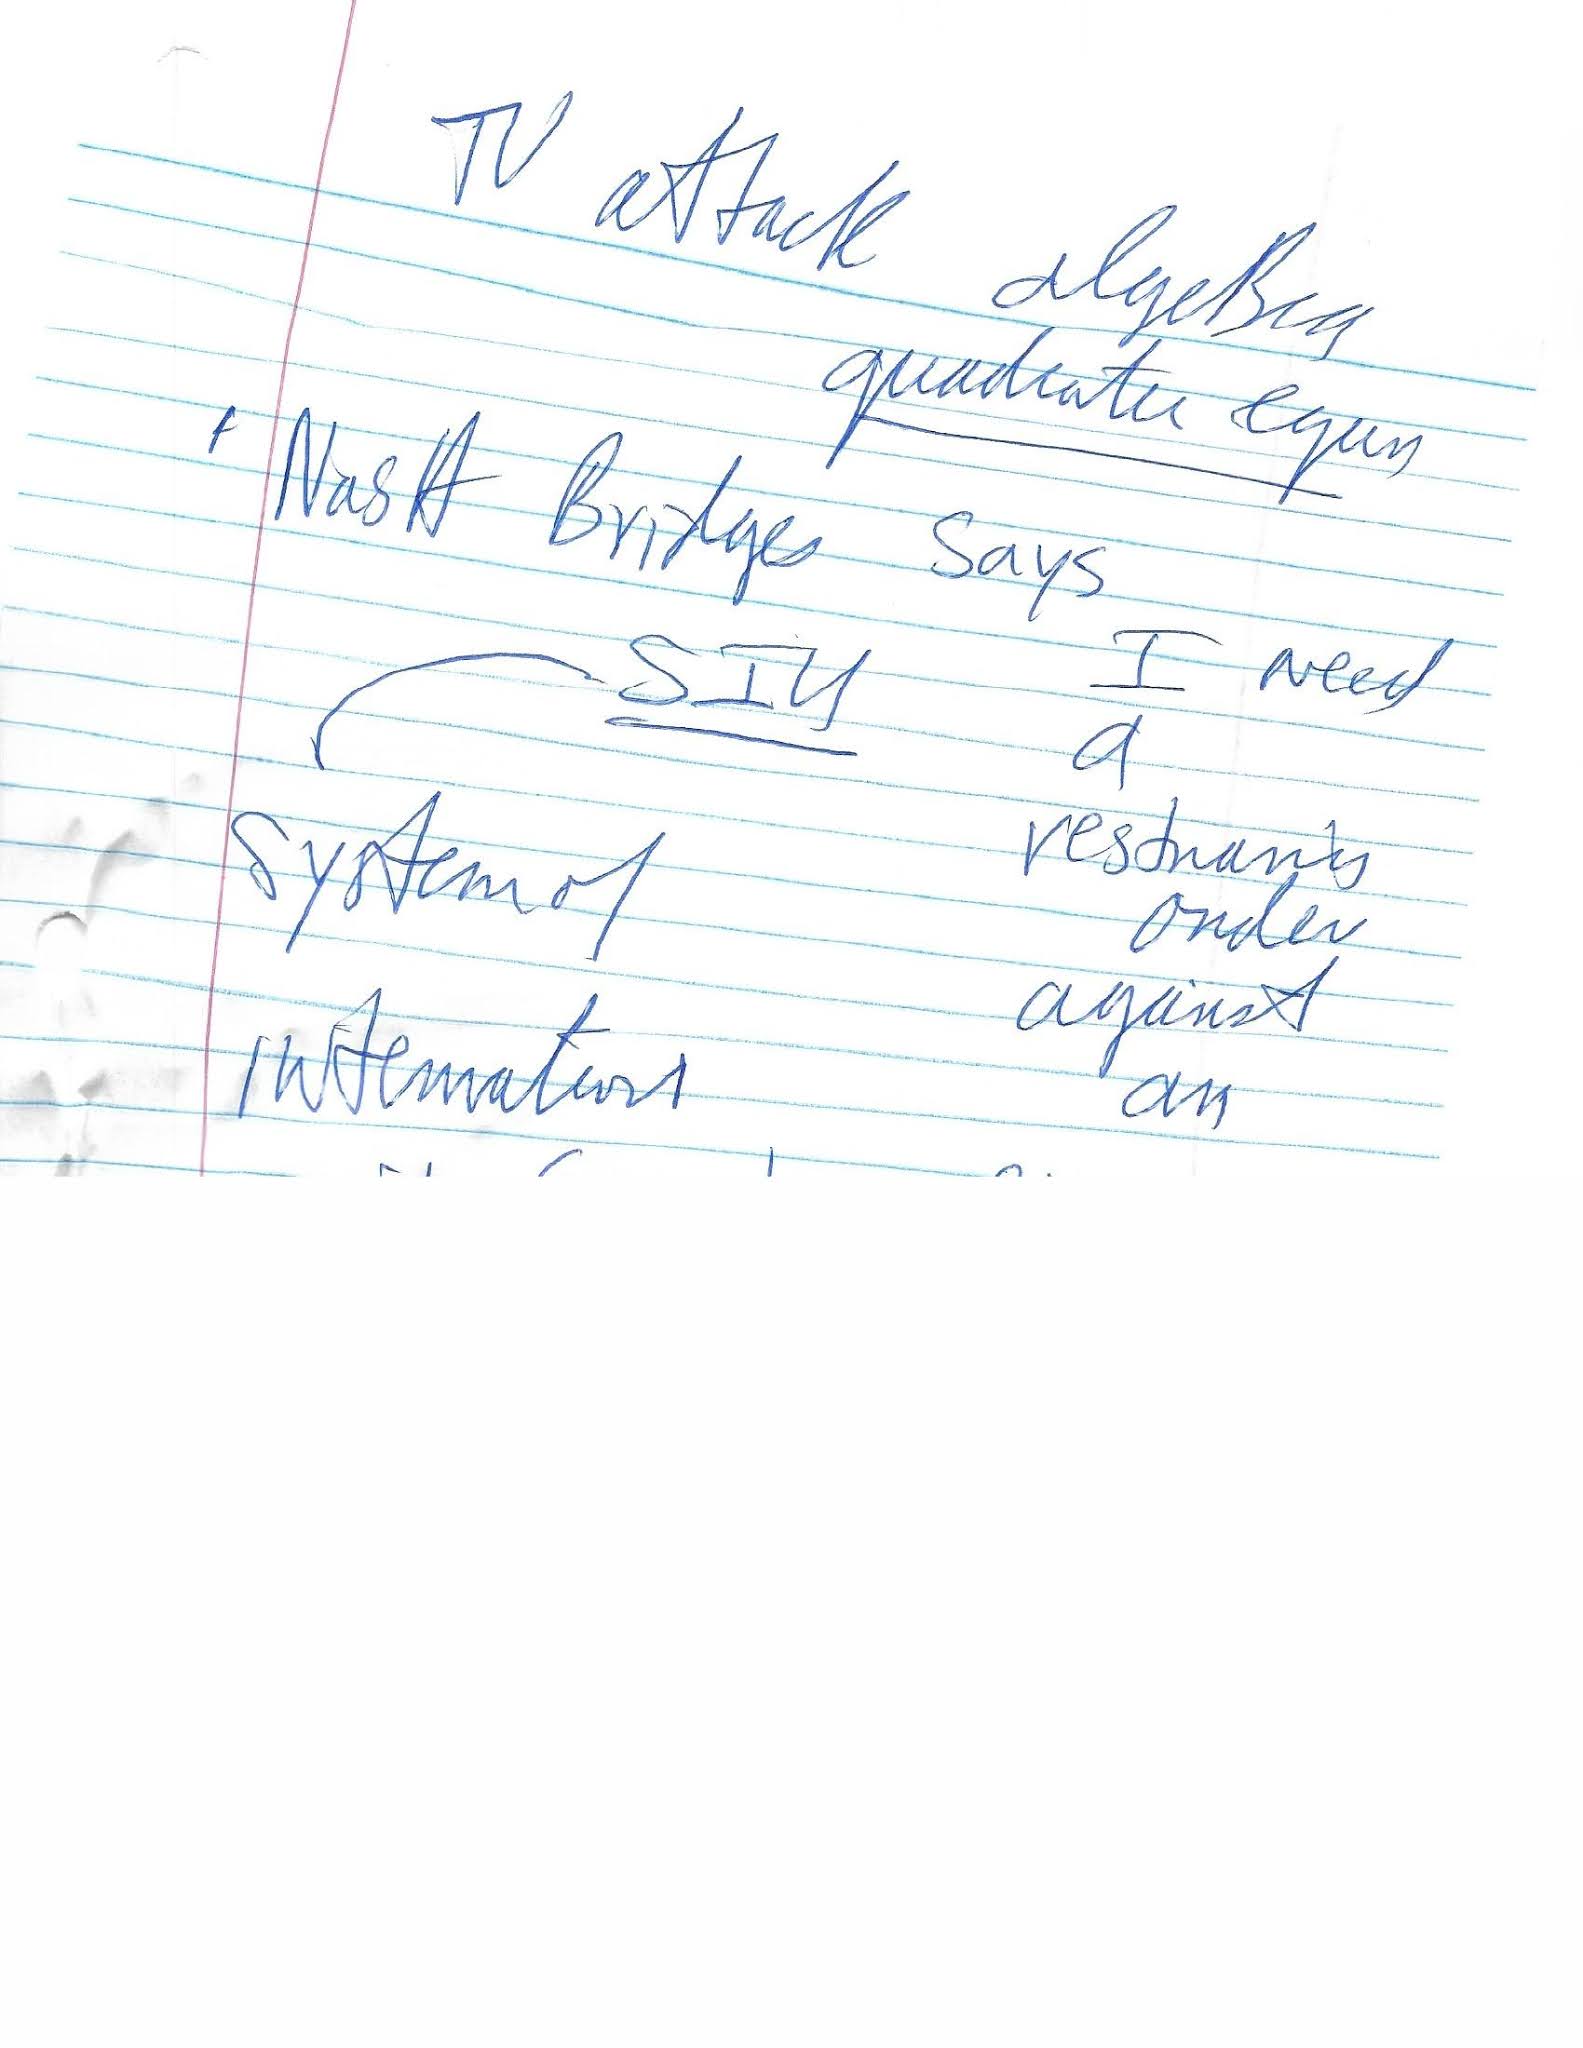 TV attack algebra
quadratic equn
+ Nash Bridges says
SIU I need
a
System of restraning
order
against
internation an